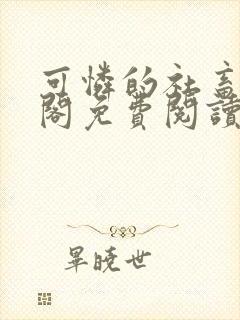 可憐的社畜
閣免費閱讀
畢曉世